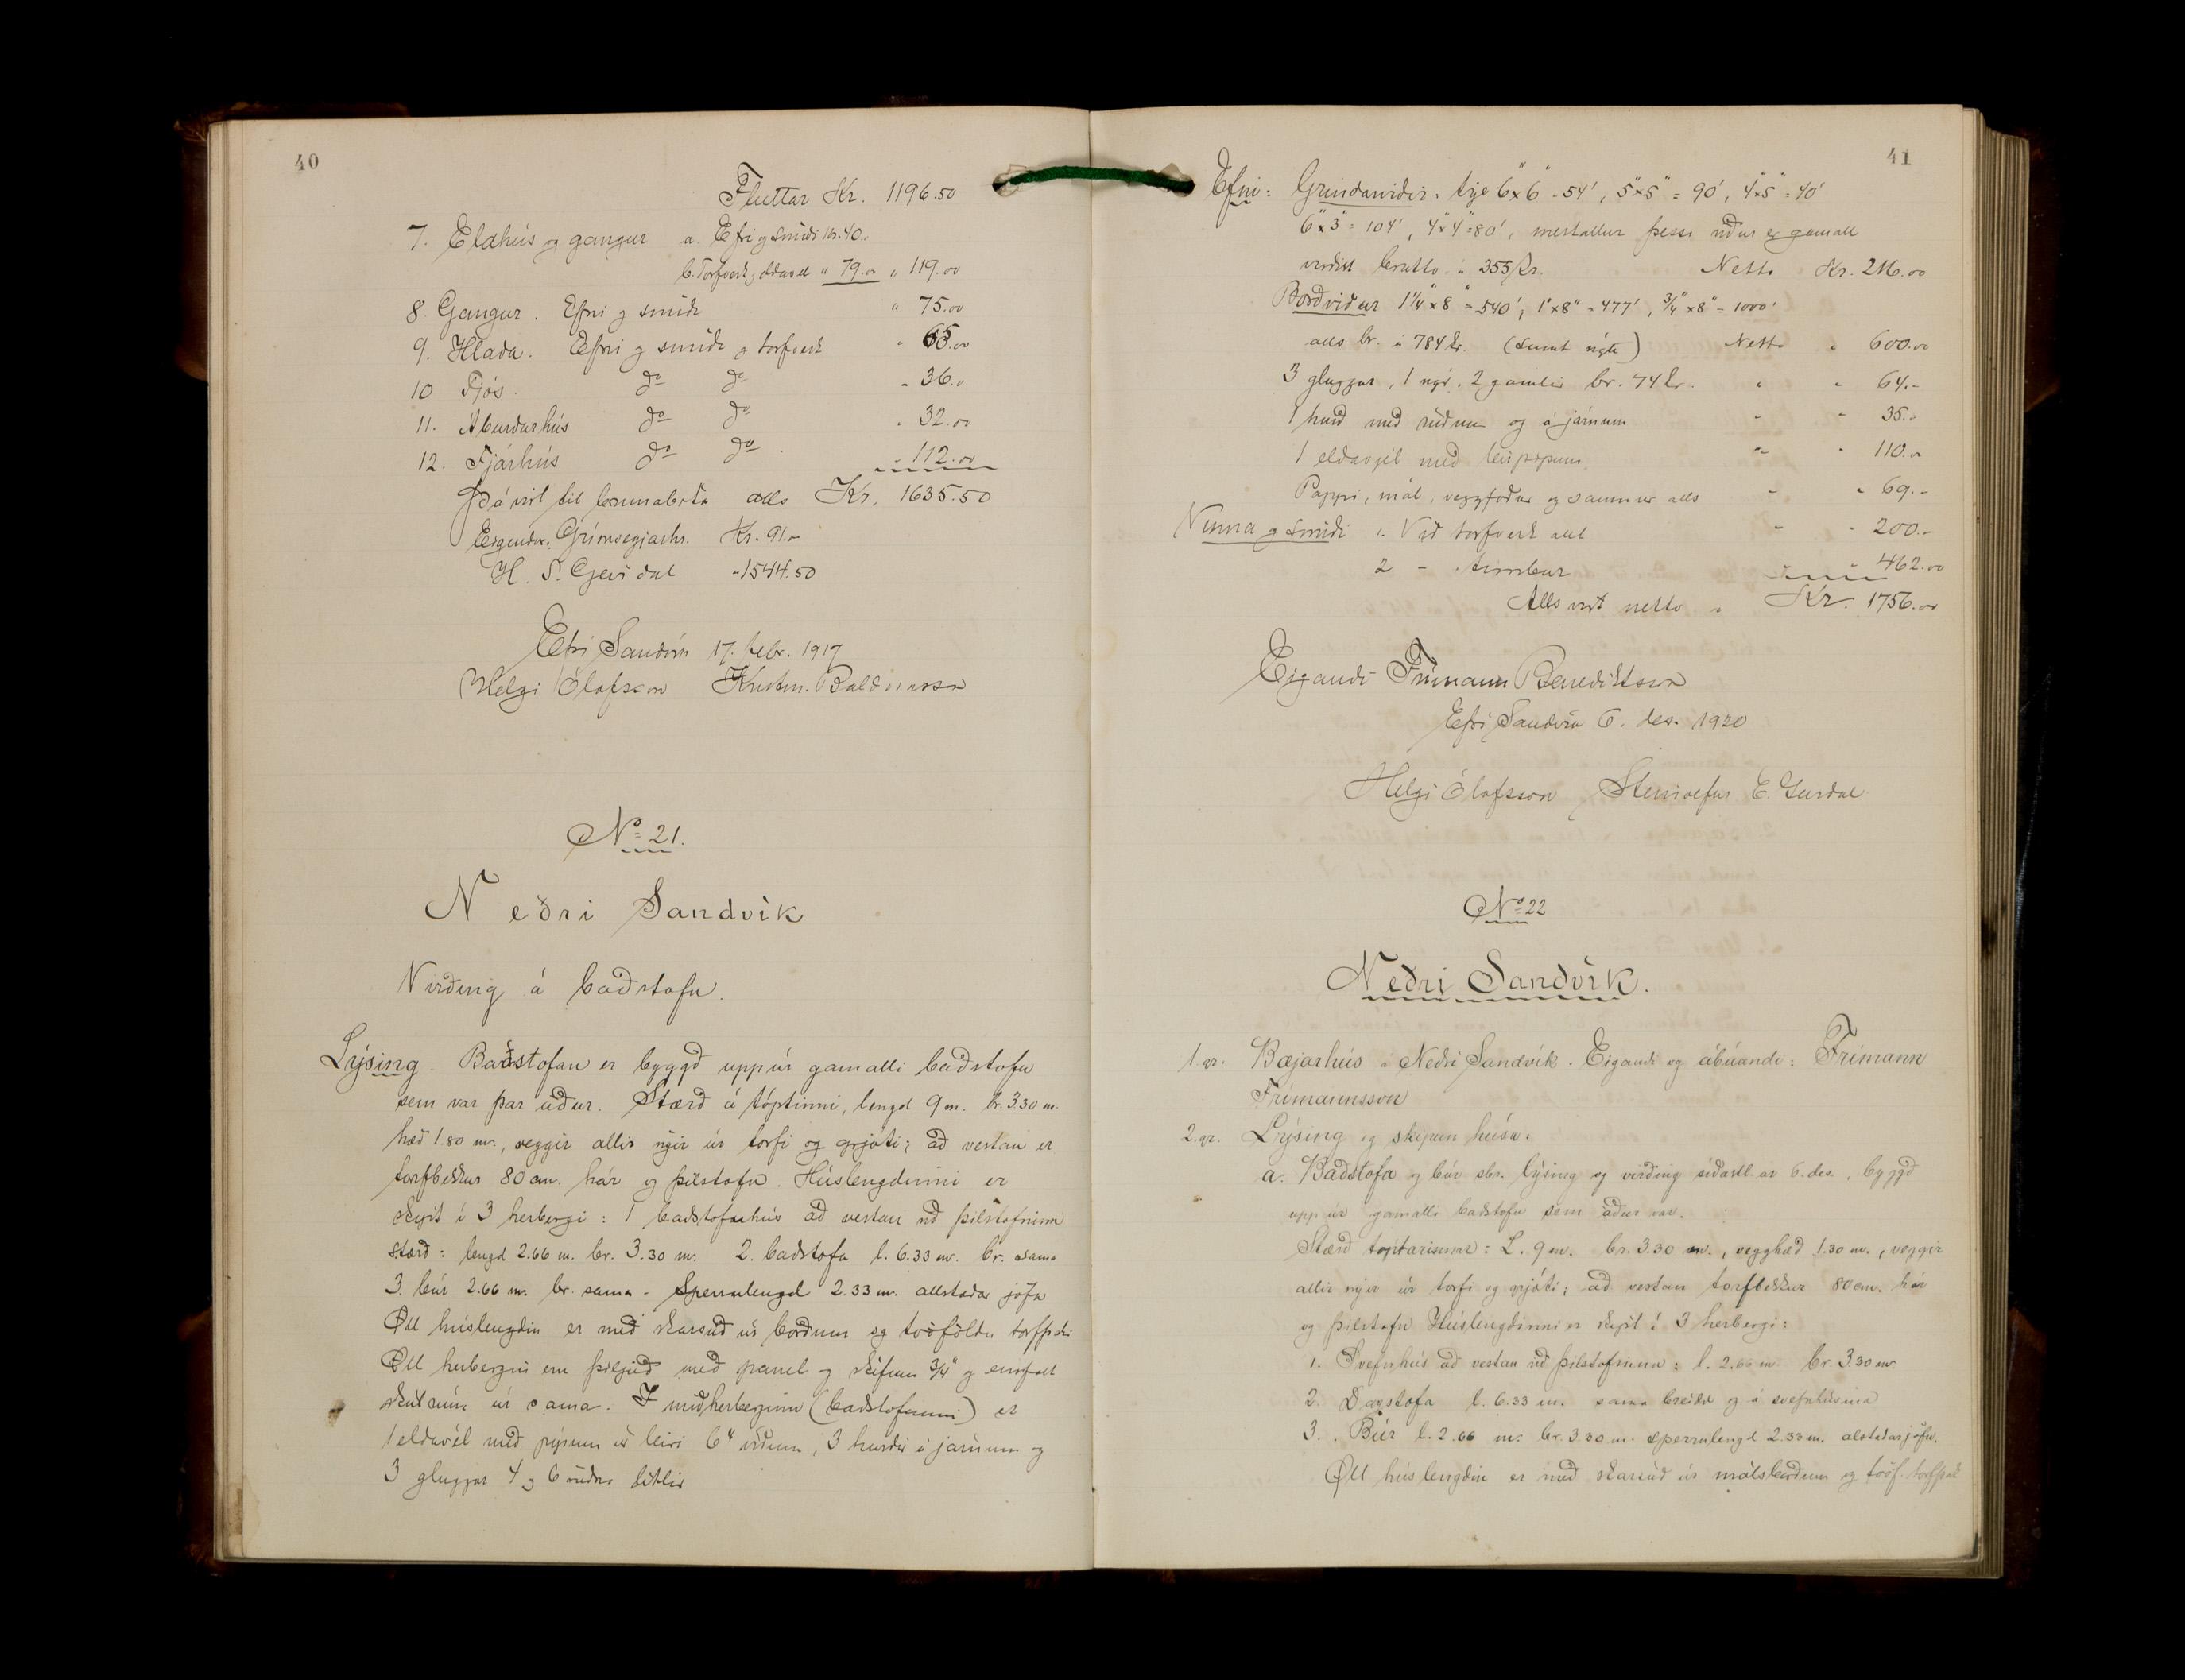 40
Fluttar Kr. 1196.50
7. Eldhús og gangur a. Efni og smíði kr. 40..
b. Torfverk, eldavél " 79.00 " 119.00
8 Gangur. Efni og smíði " 75.00
9. Hlaða. Efni og smíði og torfverk " 65.00
10 Fjós. do do " 36.0
11. Áburðarhús do do " 32.00
12. Fjárhús do do " 112.00
Það á virt til brunabóta alls Kr. 1635.50
Eigendur: Grímseyjarhr. Kr. 91.-
H. S. Geirdal " 1544.50
Efri Sandvík 17. febr. 1917
Helgi Ólafsson Kristin. Baldvinsson
No 21.
Neðri Sandvík
Virðing á baðstofu.
Lýsing. Baðstofan er byggð uppúr gamalli baðstofu
sem var þar áður. Stærð á tóptinni, lengd 9 m. br. 3.30 m.
hæð 1.80 m., veggir allir nýir úr torfi og grjóti; að vestan er
torfbekkur 80 cm. hár og þilstafn. Húslengdinni er
skipt í 3 herbergi: 1 baðstofuhús að vestan við þilstafninn
stærð: lengd 2.66 m. br. 3.30 m. 2. baðstofa l. 6.33 m. br. sama
3. búr 2.66 m. br. sama - Sperrulengd 2.33 m. allstaðar jöfn
Öll húslengdin er með skarsúð úr borðum og tvöföldu torfþaki
Öll herbergin eru þiljuð með panel og skífum 3/4" og einfalt
skilrúm úr sama. Í miðherberginu (baðstofunni) er
1 eldavél með pípum úr leiri 6" víðum, 3 hurðir á járnum og
3 gluggar 4 og 6 rúðna litlir
41
Efni: Grindarviðir: trje 6"x6" - 54', 5"x5" = 90', 4"x5" = 40'
6"x3" = 104', 4"x4" = 80', mestallur þessi viður er gamall
virðist brutto á 355 kr. Netto Kr. 216.00
Borðviður 1 1/4"x8" = 540', 1"x8" = 477', 3/4"x8" = 1000'
alls br. á 784 kr. (sumt nýtt) Netto " 600.00
3 gluggar, 1 nýr, 2 gamlir br. 74 kr. " " 64.-
1 hurð með rúðum og á járnum " " 35.-
1 eldavjel með leirpípum " " 110.0
Pappi, mál, veggfóður og saumur alls " " 69.-
Vinna og smíði 1. Við torfverk allt " " 200.-
2 - timbur " " 462.00
Alls virt netto á Kr. 1756.00
Eigandi Frímann Benediktsson
Efri Sandvík 6. des. 1920
Helgi Ólafsson Steinólfur E. Geirdal
No 22
Neðri Sandvík.
1. gr. Bæjarhús á Neðri Sandvík. Eigandi og ábúandi: Frímann
Frímannsson
2. gr. Lýsing og skipun húsa:
a. Baðstofa og búr sbr. lýsing og virðing síðastl. ár 6. des., byggð
upp úr gamalli baðstofu sem áður var.
Stærð tóptarinnar: L. 9 m. br. 3.30 m., vegghæð 1.30 m., veggir
allir nýir úr torfi og grjóti; að vestan torfbekkur 80 cm. hár
og þilstafn Húslengdinni er skipt í 3 herbergi:
1. Svefnhús að vestan við þilstafninn: l. 2.66 m. br. 3.30 m.
2. Dagstofa l. 6.33 m. sama breidd og á svefnhúsinu
3. Búr l. 2.66 m. br. 3.30 m. sperrulengd 2.33 m. alstaðar jöfn.
Öll húslengdin er með skarsúð úr málsborðum og tvöf. torfþak